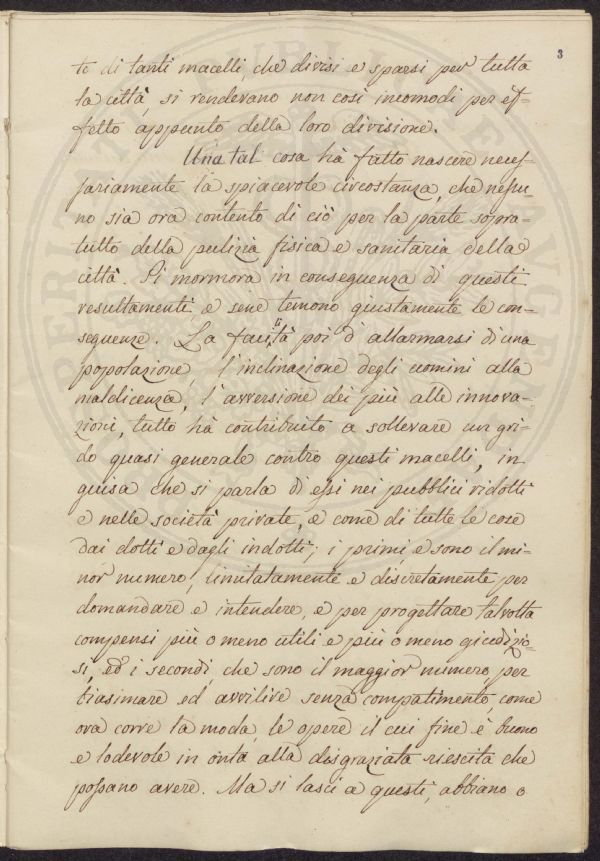 3
te di tanti macelli, che divisi e sparsi per tutta
la città, si rendevano non così incomodi per ef-
fetto appunto della loro divisione.
Una tal cosa hà fatto nascere neces-
sariamente la spiacevole circostanza, che nessu-
no sia ora contento di ciò per la parte sopra-
tutto della pulizia fisica e sanitaria della
città. Si mormora in conseguenza di questi
resultamenti e sene temono giustamente le con-
seguenze. La facilità poi d'allarmarsi di una
popolazione, l'inclinazione degli uomini alla
maldicenza, l'avversione dei più alle innova-
zioni, tutto hà contribuito a sollevare un gri-
do quasi generale contro questi macelli, in
guisa che si parla di essi nei pubblici ridotti
e nelle società private, e come di tutte le cose
dai dotti e dagli indotti; i primi, e sono il mi-
nor numero, limitatamente e discretamente per
domandare e intendere, e per progettare talvolta
compensi più o meno utili e più o meno giudizio-
si, ed i secondi, che sono il maggior numero, per
biasimare ed avvilire senza compatimento, come
ora corre la moda, le opere il cui fine è buono
e lodevole in onta alla disgraziata riescita che
possano avere. Ma si lasci a questi, abbiano o